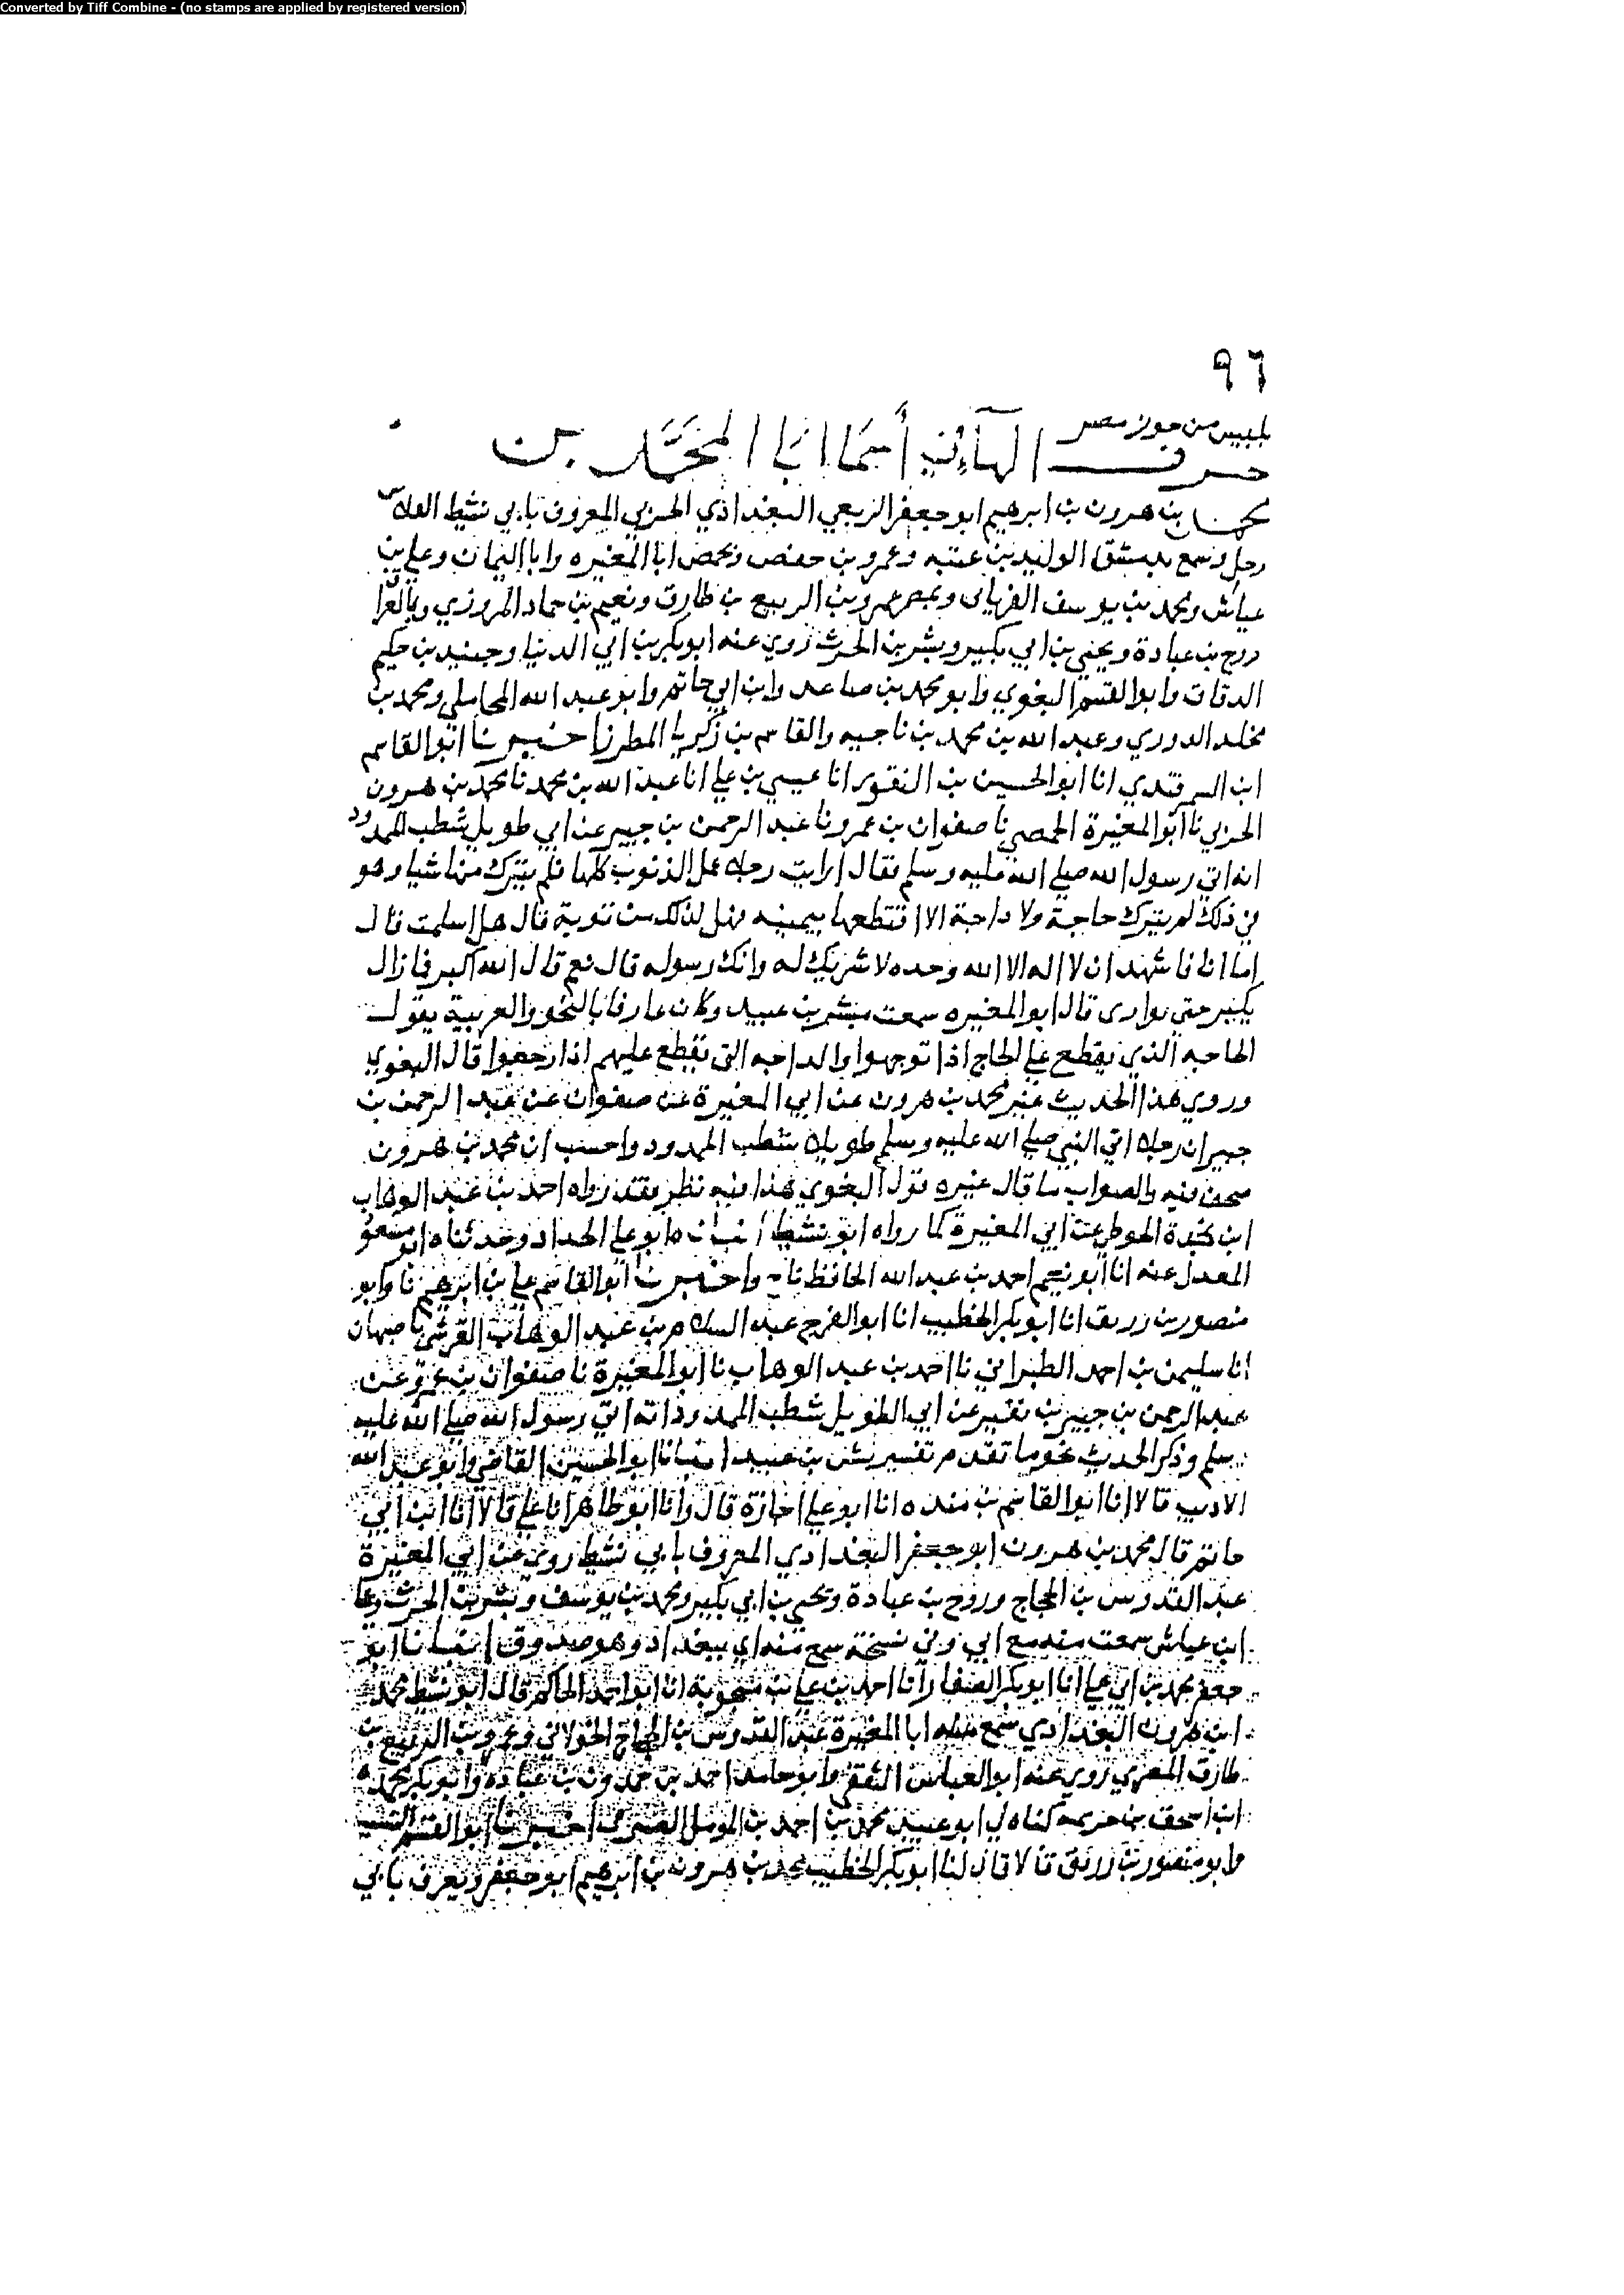 Converted by Tiff Combine - (no stamps are applied by registered version)
٩٦
بلبيس من حوز مصر
حرف الهاء في أسماء اباء المحمدين
محمد بن هرون بن ابرهيم ابو جعفر الربعي البغدادي الحربي المعروف بابي نشيط الفلاس
رحل وسمع بدمشق الوليد بن عتبه وعمرو بن حفص وبحمص ابا المغيره وابا اليمان وعلي بن
عياش ومحمد بن يوسف الفريابى وبمصر عمرو بن الربيع بن طارق ونعيم بن حماد المروزي وبالعراق
روح بن عبادة ويحيي بن ابي بكير وبشر بن الحرث روي عنه ابو بكر بن ابي الدنيا وجنيد بن حكيم
الدقاق وابو القسم البغوي وابو محمد بن صاعد وابن ابي حاتم وابو عبد الله المحاملي ومحمد بن
مخلد الدوري وعبد الله بن محمد بن ناجيه والقاسم بن زكريا المطرز اخبرنا ابو القاسم
ابن السمرقندي انا ابو الحسين بن النقور انا عيسي بن علي انا عبد الله بن محمد نا محمد بن هرون
الحربي نا ابو المغيرة الحمصي نا صفوان بن عمرو نا عبد الرحمن بن جبير عن ابي طويل شطب الممدود
انه اتي رسول الله صلي الله عليه وسلم فقال ارايت رجلا عمل الذنوب كلها فلم يترك منها شيا وهو
في ذلك لم يترك حاجة ولا داجة الا اقتطعها بيمينه فهل لذلك من توبة قال هل اسلمت قال
اما انا فاشهد ان لا اله الا الله وحده لا شريك له وانك رسوله قال نعم قال الله اكبر فما زال
يكبر حتي توارى قال ابو المغيره سمعت مبشر بن عبيد وكان عارفا بالنحو والعربية يقول
الحاجه الذي يقطع علي الحاج اذا توجهوا والداجه التي تقطع عليهم اذا رجعوا قال البغوي
وروي هذا الحديث غير محمد بن هرون عن ابي المغيرة عن صفوان عن عبد الرحمن بن
جبير ان رجلا اتي النبي صلي الله عليه وسلم طويلا شطب الممدود واحسب ان محمد بن هرون
صحف فيه والصواب ما قال غيره قول البغوي هذا فيه نظر فقد رواه احمد بن عبد الوهاب
ابن نجدة الحوطي عن ابي المغيرة كما رواه ابو نشيط انبأناه ابو علي الحداد وحدثناه ابو مسعود
المعدل عنه انا ابو نعيم احمد بن عبد الله الحافظ نا ح واخبرنا ابو القاسم علي بن ابرهيم نا وابو
منصور بن زريق انا ابو بكر الخطيب انا ابو الفرج عبد السلام بن عبد الوهاب القرشي باصبهان
انا سليمن بن احمد الطبراني نا احمد بن عبد الوهاب نا ابو المغيرة نا صفوان بن عمرو عن
عبد الرحمن بن جبير بن نفير عن ابي الطويل شطب الممدود انه اتي رسول الله صلي الله عليه
وسلم وذكر الحديث نحو ما تقدم تفسير بشر بن عبيد انبانا ابو الحسين القاضي وابو عبد الله
الاديب قالا انا ابو القاسم بن منده انا ابو علي اجازة قال وانا ابو طاهر انا علي قالا انا ابن ابي
حاتم قال محمد بن هرون ابو جعفر البغدادي المعروف بابي نشيط روي عن ابي المغيرة
عبد القدوس بن الحجاج وروح بن عبادة ويحيي بن ابي بكير ومحمد بن يوسف وبشر بن الحرث وعلي
ابن عياش سمعت منه مع ابي وفي نسخة سمع منه ابي ببغداد وهو صدوق انبانا ابو
جعفر محمد بن ابي علي انا ابو بكر الصفار انا احمد بن علي بن منجويه انا ابو احمد الحاكم قال ابو نشيط محمد
ابن هرون البغدادي سمع ابا المغيرة عبد القدوس بن الحجاج الخولاني وعمرو بن الربيع بن
طارق المصري روي عنه ابو العباس الثقفي وابو حامد احمد بن حمدون بن عباده وابو بكر محمد
ابن اسحق بن خزيمه كناه لي ابو عبيد محمد بن احمد بن المومل الصيرفي اخبرنا ابو القسم النسيب
وابو منصور بن زريق قالا قال لنا ابو بكر الخطيب محمد بن هرون بن ابرهيم ابو جعفر ويعرف بابي